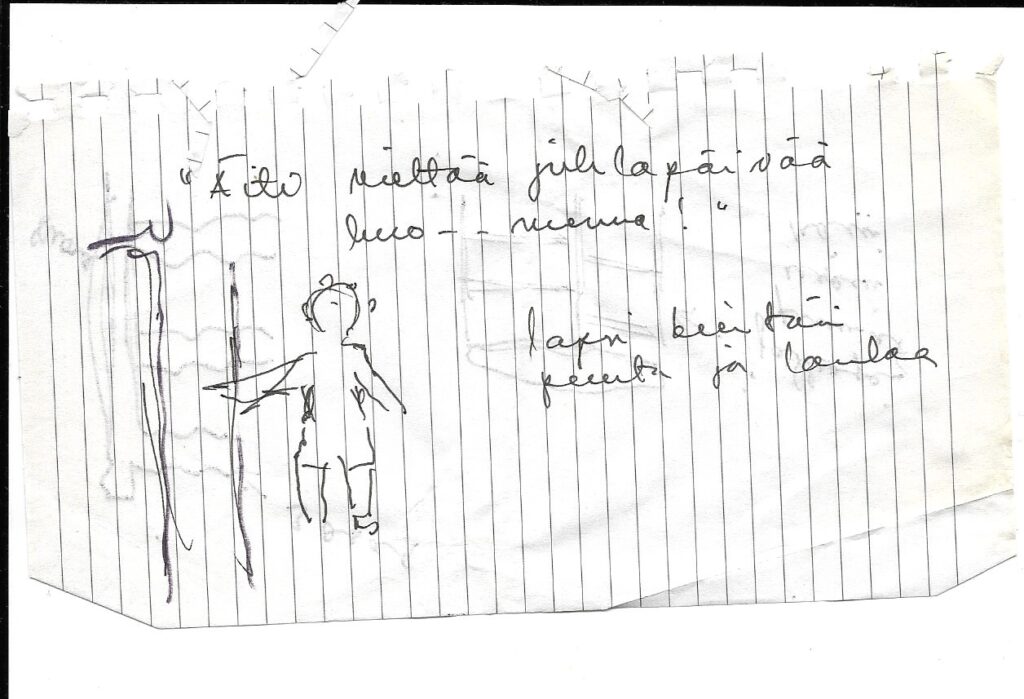 "Äiti viettää juhlapäivää
huo - - menna!"
lapsi kiertää
puuta ja laulaa